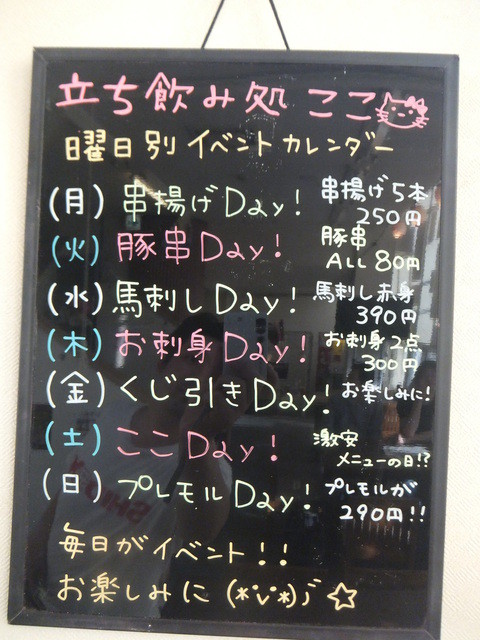 立ち飲み処 ここ
曜日別イベントカレンダー
(月) 串揚げDay! 串揚げ5本 250円
(火) 豚串Day! 豚串 ALL 80円
(水) 馬刺しDay! 馬刺し赤身 390円
(木) お刺身Day! お刺身2点 300円
(金) くじ引きDay! お楽しみに!
(土) ここDay! 激安 メニューの日!?
(日) プレモルDay! プレモルが 290円!!
毎日がイベント!!
お楽しみに (*'v'*)ノ☆